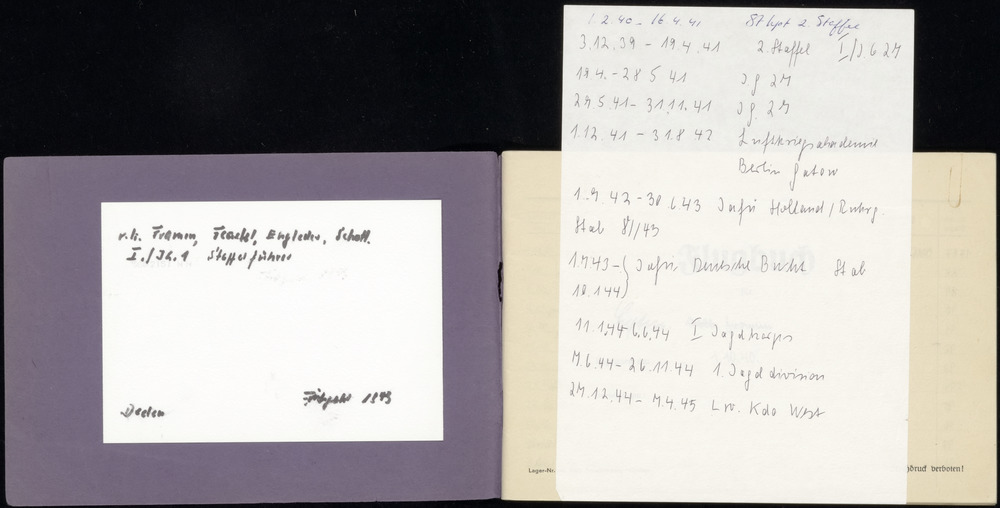 v.li. Framm, Engleder, Schott.
I./JG. 1 Staffelführer
Frühjahr 1943
1.2.40 - 16.4.41 St. Kpt 2. Staffel
3.12.39 - 19.4.41 2. Staffel I/J.G 27
19.4. - 28 5 41 J.g 27
29 5.41 - 31.11.41 J.g. 27
1.12.41 - 31.8 42 Luftkriegsakademie
Berlin Gatow
1.9.42 - 30 6 43 Jafü Holland/Ruhrg.
Stab
1.7.43 - Jafü Deutsche Bucht Stab
10.1 44
11.1.44 - 6.6.44 I Jagdkorps
7.6.44 - 26.11.44 1. Jagddivision
27.12.44 - 7.4.45 Lw. Kdo West
Lager-Nr.
druck verboten!